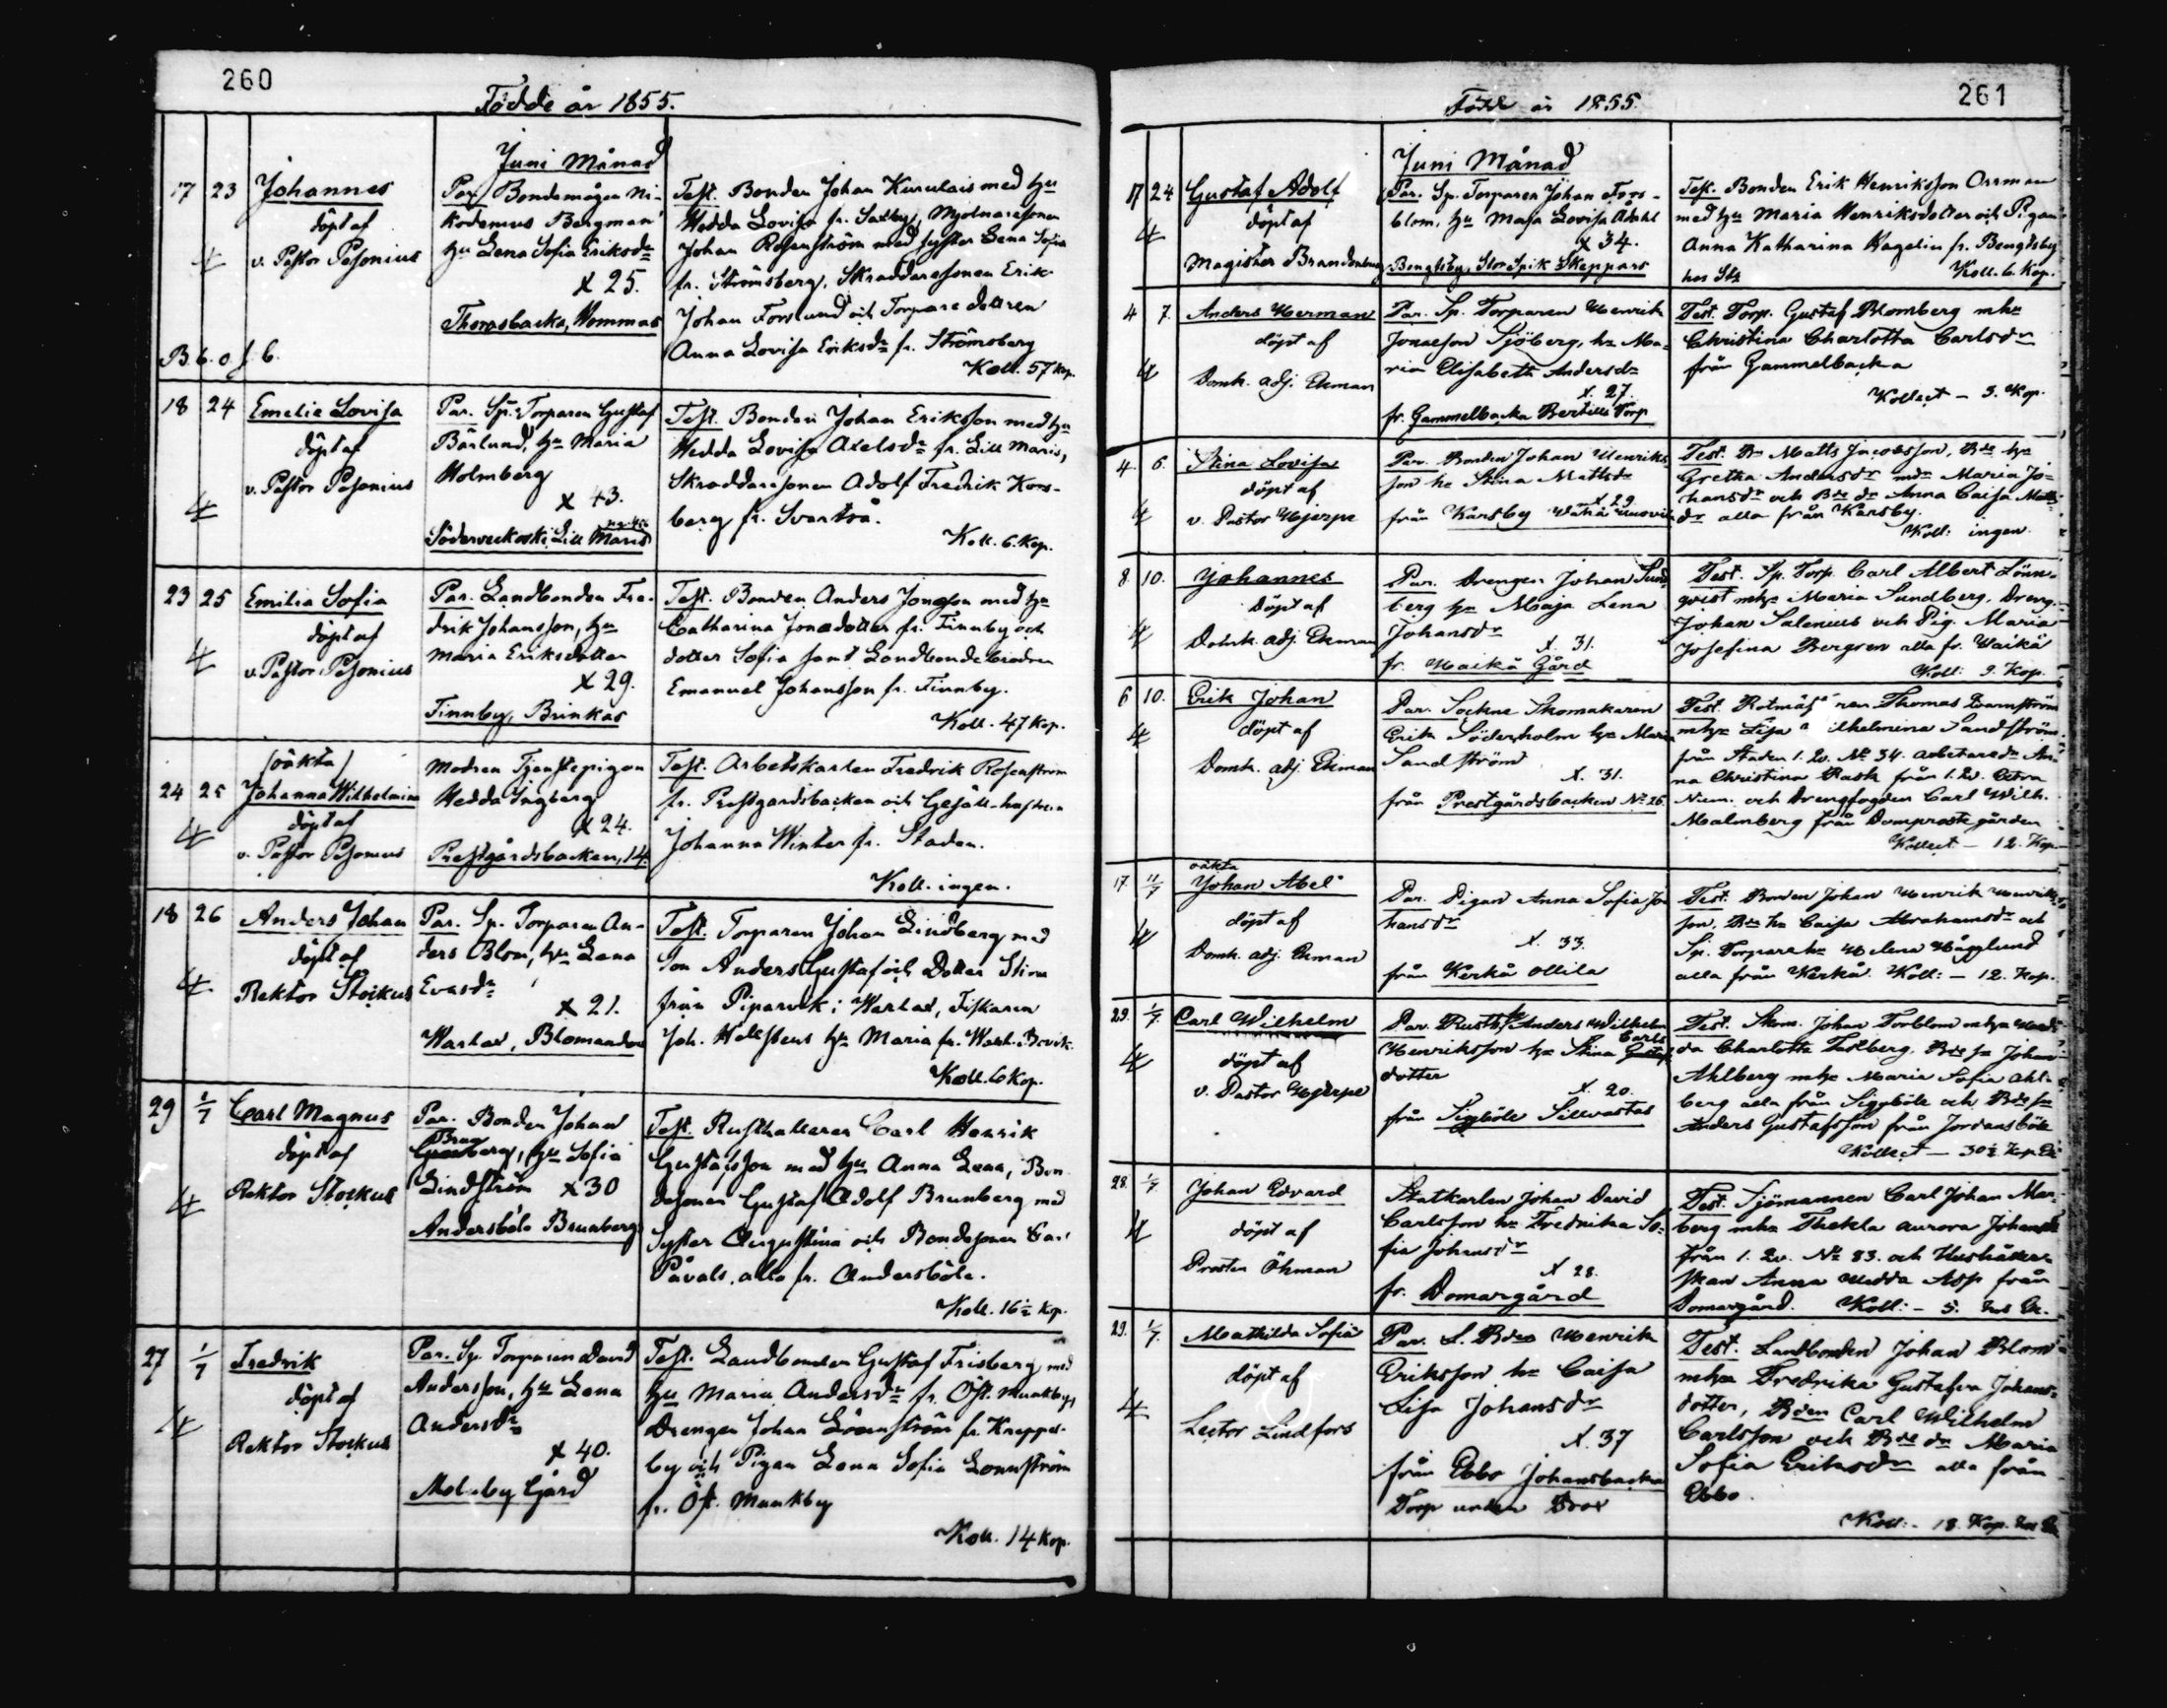 260
Födde år 1855.
Juni Månad
17 23 Johannes
döpt af
v. Pastor Pesonius
B. b. o. f. b.
Par. Bondemågen Ni-
kodemus Bergman
hu Lena Sofia Eriksdr
x 25.
Thorasbacka, Hommas
Test. Bonden Johan Kurulais med hu
Hedda Lovisa fr. Saxby, Mjolnaresonen
Johan Rosenström med syster Lena Sofia
fr. Strömsberg, Skraddaresonen Erik
Johan Forslund och Torpare dottren
Anna Lovisa Eriksdr fr. Strömsberg
Koll. 57 kop.
18 24 Emelie Lovisa
döpt af
v. Pastor Pesonius
Par. Sp. Torparen Gustaf
Bärlund, hu Maria
Holmberg
x 43.
Söderveckoski Lill Maris
Test. Bonden Johan Eriksson med hu
Hedda Lovisa Axelsdr fr. Lill Maris,
Skraddaresonen Adolf Fredrik Kors-
berg fr. Svartså.
Koll. 6. Kop.
23 25 Emilia Sofia
döpt af
v. Pastor Pesonius
Par. Landbonden Fre-
drik Johansson, hu
Maria Eriksdotter
x 29.
Finnby, Brinkas
Test. Bonden Anders Jonasson med hu
Catharina Jonasdotter fr. Finnby och
dotter Sofia samt Landbondebrodren
Emanuel Johansson fr. Finnby.
Koll. 47 Kop.
(oäkta)
24 25 Johanna Wilhelmina
döpt af
v. Pastor Pesonius
Modren Tjenstepigan
Hedda Ingberg
x 24.
Prestgårdsbacken, 14.
Test. Arbetskarlen Fredrik Rosenström
fr. Prestgardsbacken och Gesäll-hustrun
Johanna Winter fr. Staden.
Koll. ingen.
18 26 Anders Johan
döpt af
Rektor Stockus
Par. Sp. Torparen An-
ders Blom, hu Lena
Evasdr
x 21.
Warlax, Blomandors
Test. Torparen Johan Lindberg med
son Anders Gustaf och Dotter Stina
från Piparvik i Warlax, Fiskaren
Joh. Hellstens hu Maria fr. Warl. Bovik.
Koll. 6 Kop.
29 1/7 Carl Magnus
döpt af
Rektor Stockus
Par. Bonden Johan
Brun
berg, hu Sofia
Lindström x 30
Andersböle Brunbergs
Test. Rusthallaren Carl Henrik
Gustafsson med hu Anna Lena, Bon-
desonen Gustaf Adolf Brunberg med
syster Augustina och Bondesonen
Påvals, alla fr. Andersböle.
Koll. 16 1/2 kop.
27 1/7 Fredrik
döpt af
Rektor Stockus
Par. Sp. Torparen David
Andersson, hu Lena
Andersdr
x 40.
Molnby Gård
Test. Landbonden Gustaf Frisberg med
hu Maria Andersdr fr. Öst. Munkby,
Drengen Johan Lönnström fr. Kroppes-
by och Pigan Lena Sofia Lonnström
fr. Öst. Munkby
Koll. 14 kop.
261
Födde år 1855
Juni Månad
17 24 Gustaf Adolf
döpt af
Magister Brandenburg
Par. Sp. Torparen Johan Fors-
blom, hu Maja Lovisa Ådahl
x 34.
Bengtsby, Stor Spik Skeppars
Test. Bonden Erik Henriksson Orrman
med hu Maria Henriksdotter och Pigan
Anna Katharina Hagelin fr. Bengtsby
Koll. 6 Kop.
4 7. Anders Herman
döpt af
Domk. adj. Ekman
Par. Sp. Torparen Henrik
Jonasson Sjöberg, hu Ma-
ria Elisabeth Andersdr
x. 27.
fr. Gammelbacka Bertills Torp
Test. Torp. Gustaf Blomberg mhu
Christina Charlotta Carlsdr
från Gammelbacka
Kollect - 5. Kop.
4. 6. Stina Lovisa
döpt af
v. Pastor Hjerpe
Par. Bonden Johan Henriks-
son hu Stina Mattsdr
x 29
från Karsby
Test. Bn Matts Jacobsson, Bde hu
Gretha Andersdr mdr Maria Jo-
hansdr och Bde dr Anna Caisa Matts-
dr alla från Karsby.
Koll: ingen
8. 10. Johannes
döpt af
Domk. adj. Ekman
Par. Drengen Johan Sund-
berg hu Maja Lena
Johansdr
x. 31.
fr. Waikå Gård
Test. Sp. Torp. Carl Albert Lönn-
qvist mhu Maria Sundberg, Dreng.
Johan Salenius och Pig. Maria
Josefina Bergren alla fr. Waikå
Koll: 9. Kop.
6 10. Erik Johan
döpt af
Domk. adj. Ekman
Par. Sockne Skomakaren
Erik Söderholm hu Maria
Sandström
x. 31.
från Prestgårdsbacken No 26.
Test. Rotmäst ren Thomas Dammström
mhu Lisa ilhelmina Sandström
från Staden 1. Qv. No 34. arbetaredr An-
na Christina Rask från 1. Qv. Extra
Num. och Drengfogden Carl Wilh.
Malmberg från Domprostgården
Kollect - 12. Kop.
oäkta
17. 11/7 Johan Abel
döpt af
Domk. adj. Ekman
Par. Pigan Anna Sofia Jo-
hansdr
x. 33.
från Kerkå Ollila
Test. Bonden Johan Henrik Henriks-
son, Bde hu Caisa Abrahamsdr och
Sp. Torpare hu Helena Hägglund
alla från Kerkå. Koll: - 12. Kop.
29. 1/7. Carl Wilhelm
döpt af
v. Pastor Hjerpe
Par. Rusth. Anders Wilhelm
Carls
Henriksson hu Stina
dotter
x. 20.
från Siggböle Sillvastas
Test. Skom. Johan Forblom mhu Hed-
da Charlotta Taslberg, Bde sn Johan
Ahlberg mhu Maria Sofia Ahl-
berg alla från Siggböle och Bde sn
Anders Gustafsson från Jordansböle
Kollect - 30 1/2 Kop.
28. 1/7. Johan Edvard
döpt af
Prosten Öhman
Statkarlen Johan David
Carlsson hu Fredrika So-
fia Johansdr
x 28.
fr. Domargård
Test. Sjömannen Carl Johan Mar-
berg mhu Thekla Aurora Johansdr
från 1. Qv. No 83. och Hushåller-
skan Anna Hedda Asp från
Domargård. Koll: - 5.
29. 1/7. Mathilda Sofia
döpt af
Lector Lindfors
Par. L. Bden Henrik
Eriksson hu Caisa
Lisa Johansdr
x. 37
från Ebbo Johansbacka
Torp under
Test. Landbonden Johan Blom
mhu Fredrika Gustafva Johans-
dotter, Bden Carl Wilhelm
Carlsson och Bde dr Maria
Sofia Eriksdr alla från
Ebbo.
Koll: - 18. Kop.